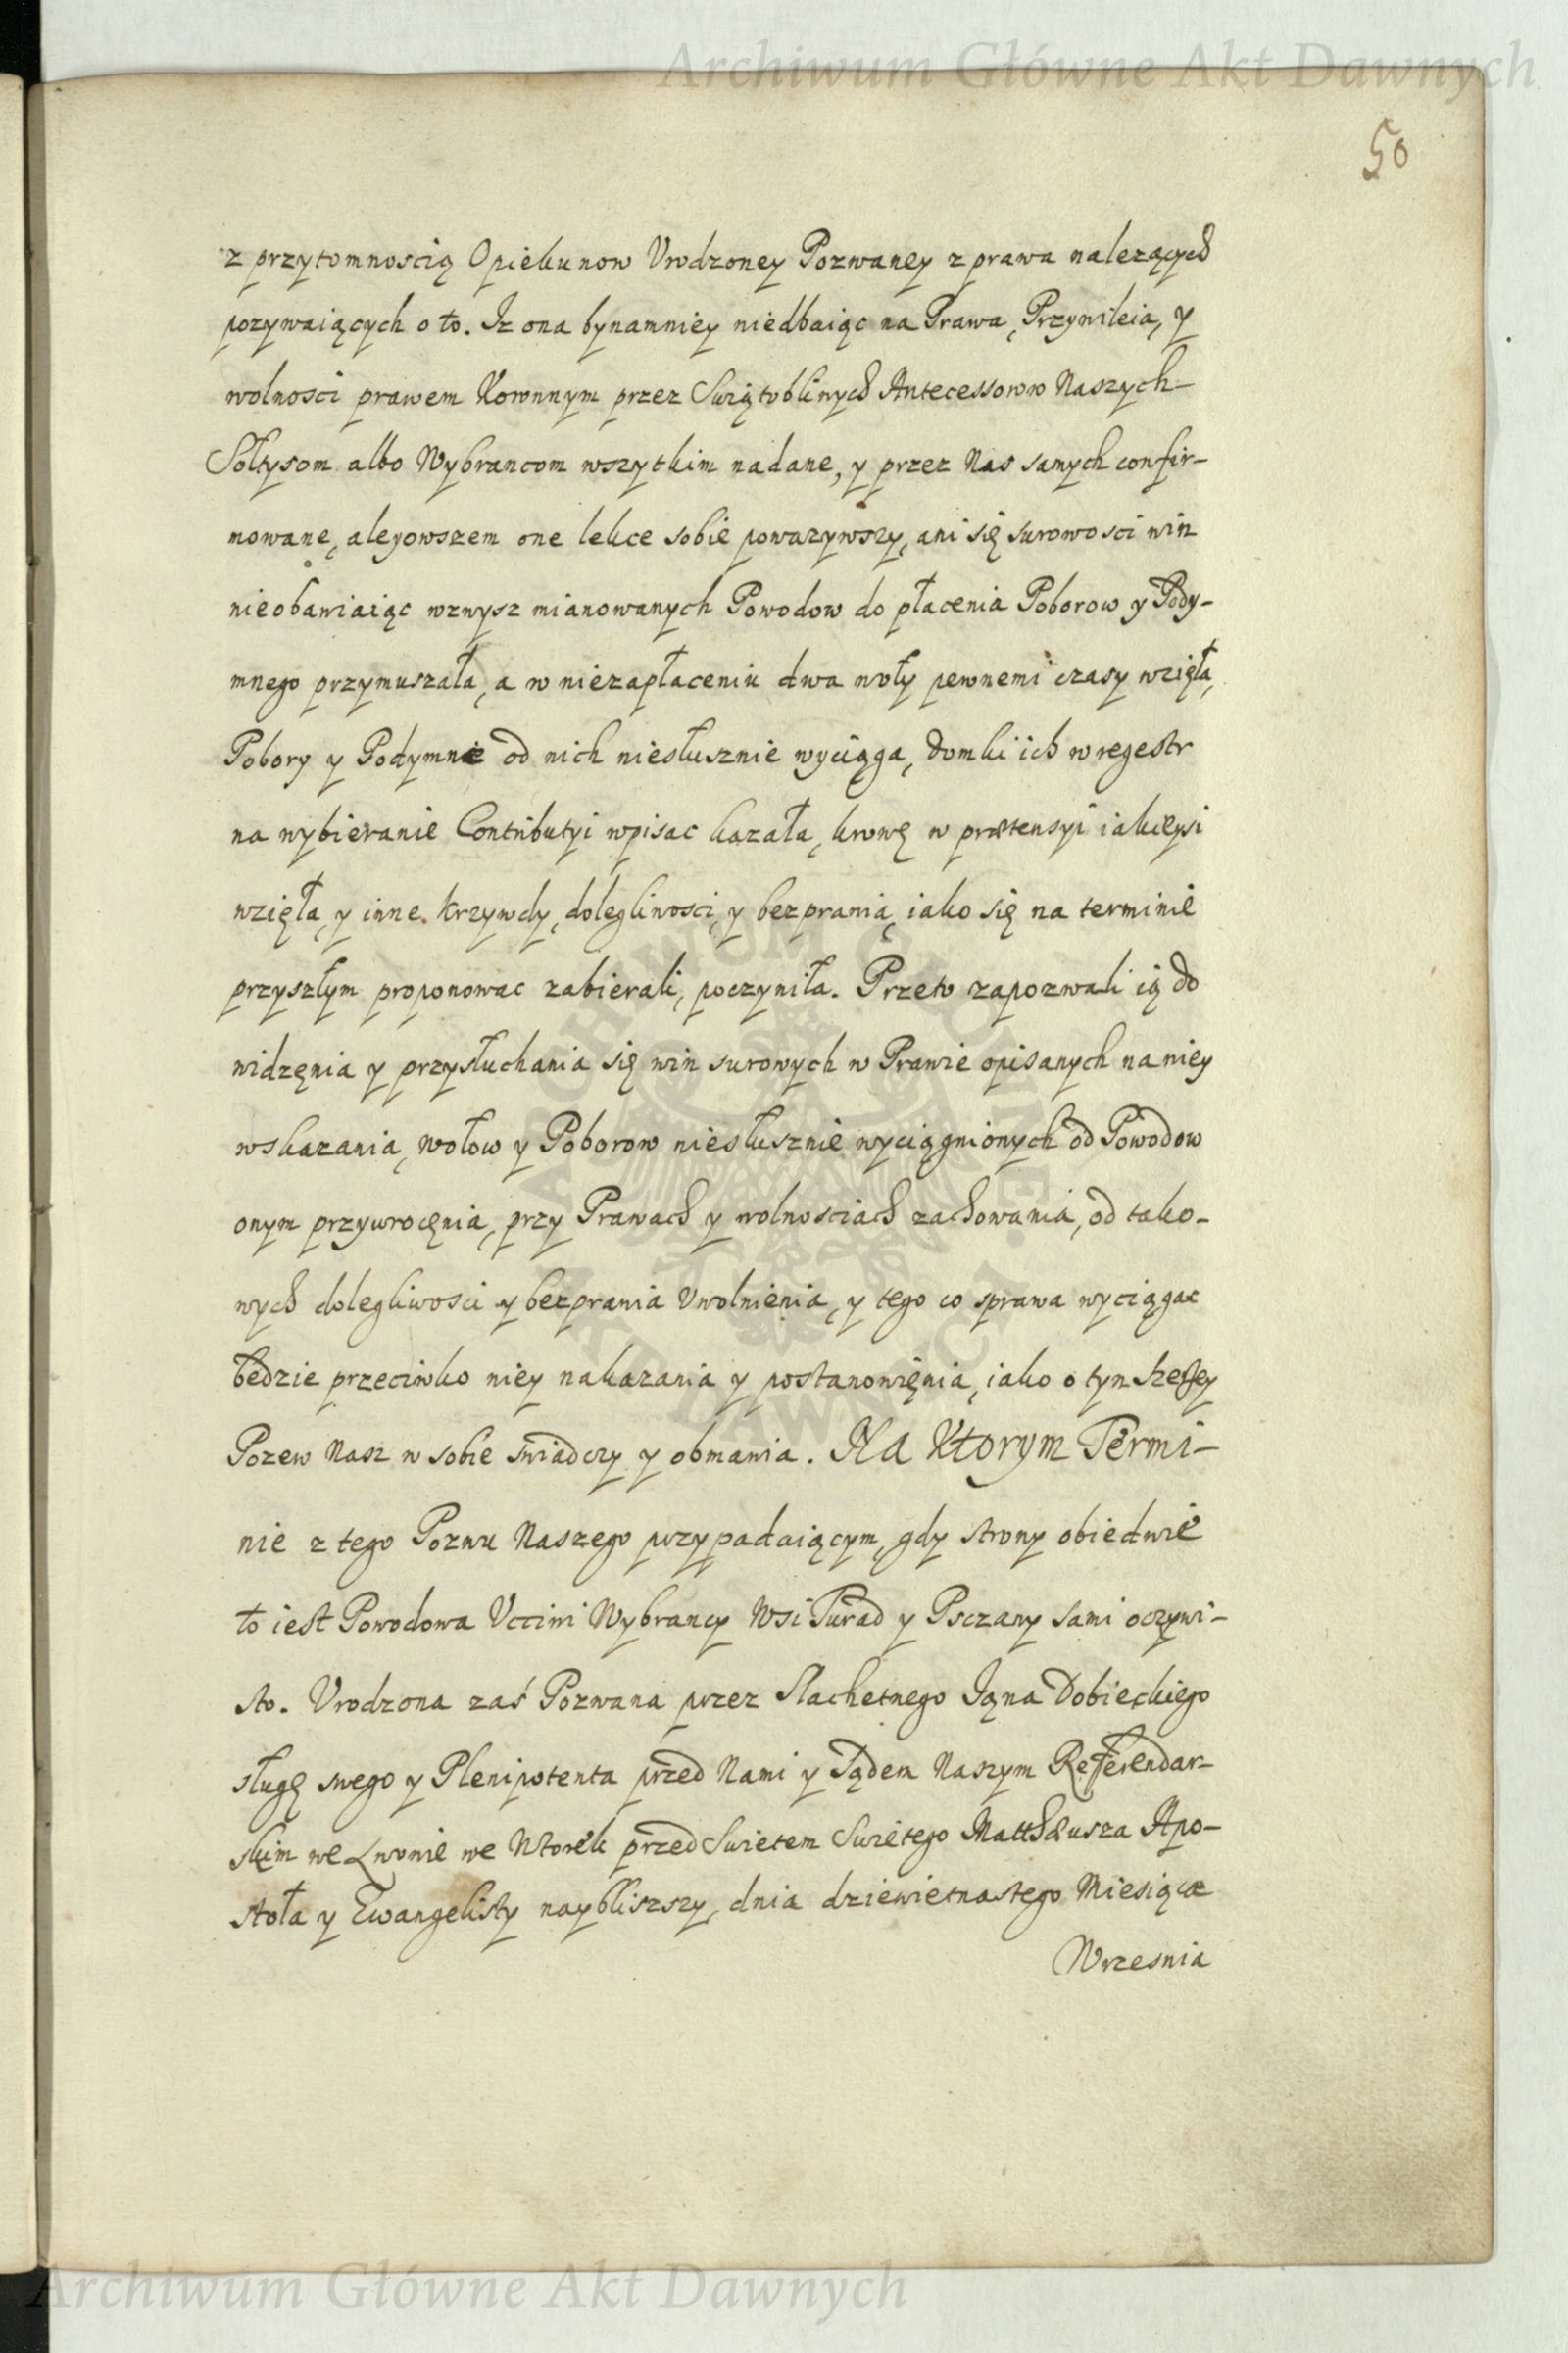 Archiwum Główne Akt Dawnych
50
z przytomnoscią Opiekunow Vrodzoney Pozwaney z prawa nalezących
pozywaiących o to. Iz ona bynamniey niedbaiąc na Prawa, Przywileia, y
wolnosci prawem Kownnym przez Swiątobliwych Antecessorow Naszych
Sołtysom albo Wybrancom wszytkim nadane, y przez Nas samych confir-
mowane, aleyowszem one lekce sobie powazywszy, ani się surowosci win
nieobawiaiąc wzwysz mianowanych Powodow do płacenia Poborow y Pody-
mnego przymuszała, a w niezapłaceniu dwa woły pewnemi czasy wzięła,
Pobory y Podymne od nich niesłusznie wyciąga, domki ich w regestr
na wybieranie Contributyi wpisac kazała, krowę w prætensyi iakieysi
wzięła, y inne krzywdy, dolegliwosci, y bezprawia, iako się na terminie
przyszłym proponowac zabierali, poczyniła. Przeto zapozwali ią do
widzęnia y przysłuchania się win surowych w Prawie opisanych na niey
wskazania, wołow y Poborow niesłusznie wyciągnionych od Powodow
onym przywrocęnia, przy Prawach y wolnosciach zachowania, od tako-
wych dolegliwosci y bezprawia Vwolnienia, y tego co sprawa wyciągac
będzie przeciwko niey nakazania y postanowięnia, iako o tym szerzey
Pozew Nasz w sobie swiadczy y obmawia. Na Ktorym Termi-
nie z tego Pozwu Naszego przypadaiącym, gdy strony obiedwie
to iest Powodowa Vcciwi Wybrancy Wsi Turad y Psczany sami oczywi-
sto. Vrodzona zaś Pozwana przez Slachetnego Iąna Dobieckiego
sługę swego y Plenipotenta przed Nami y Sądem Naszym Referendar-
skim we Lwowie we Wtorek przed Swietem Swiétego Matthæusza Apo-
stoła y Ewangelisty naybliszszy, dnia dziewietnastego Miesiąca
Wrzesnia
Archiwum Główne Akt Dawnych